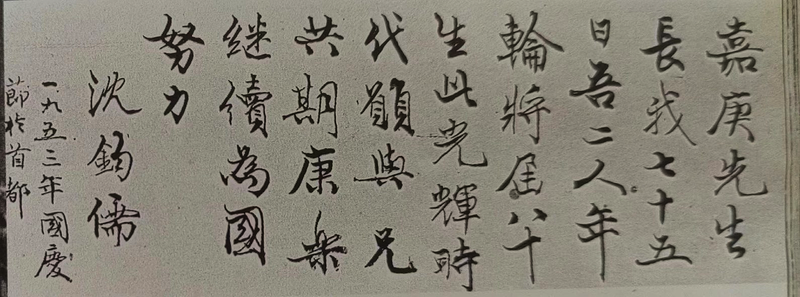 嘉庚先生
長我七十五
日吾二人年
輪將屆八十
生此光輝時
代願與兄
共期康樂
继續為國
努力
沈鈞儒
一九五三年國慶
節於首都